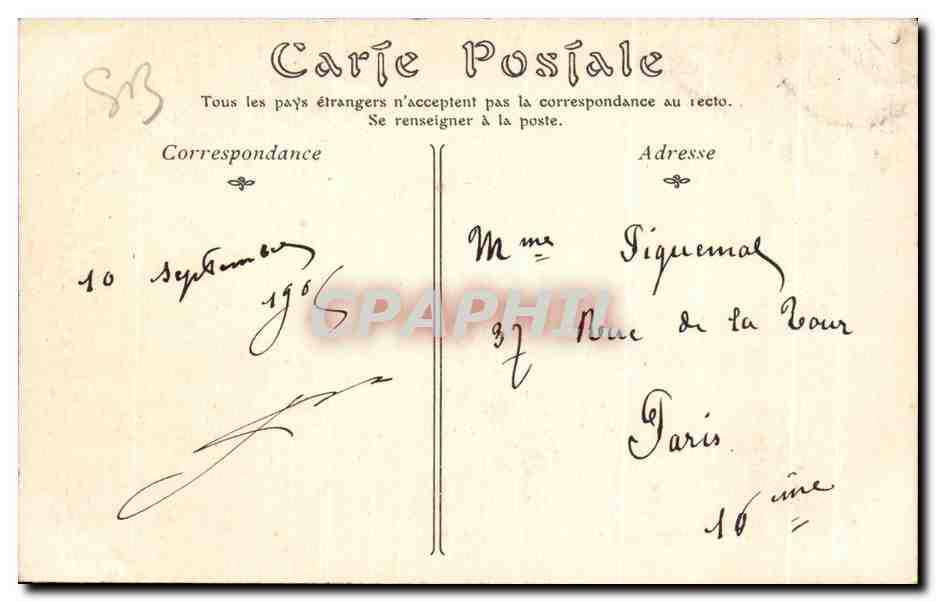 Carte Postale
SB
Tous les pays étrangers n'acceptent pas la correspondance au recto.
Se renseigner à la poste.
Correspondance
10 Septembre
CPAPHIL
Adresse
Mme Piquemal
37 Rue de la Tour
Paris
16 ème